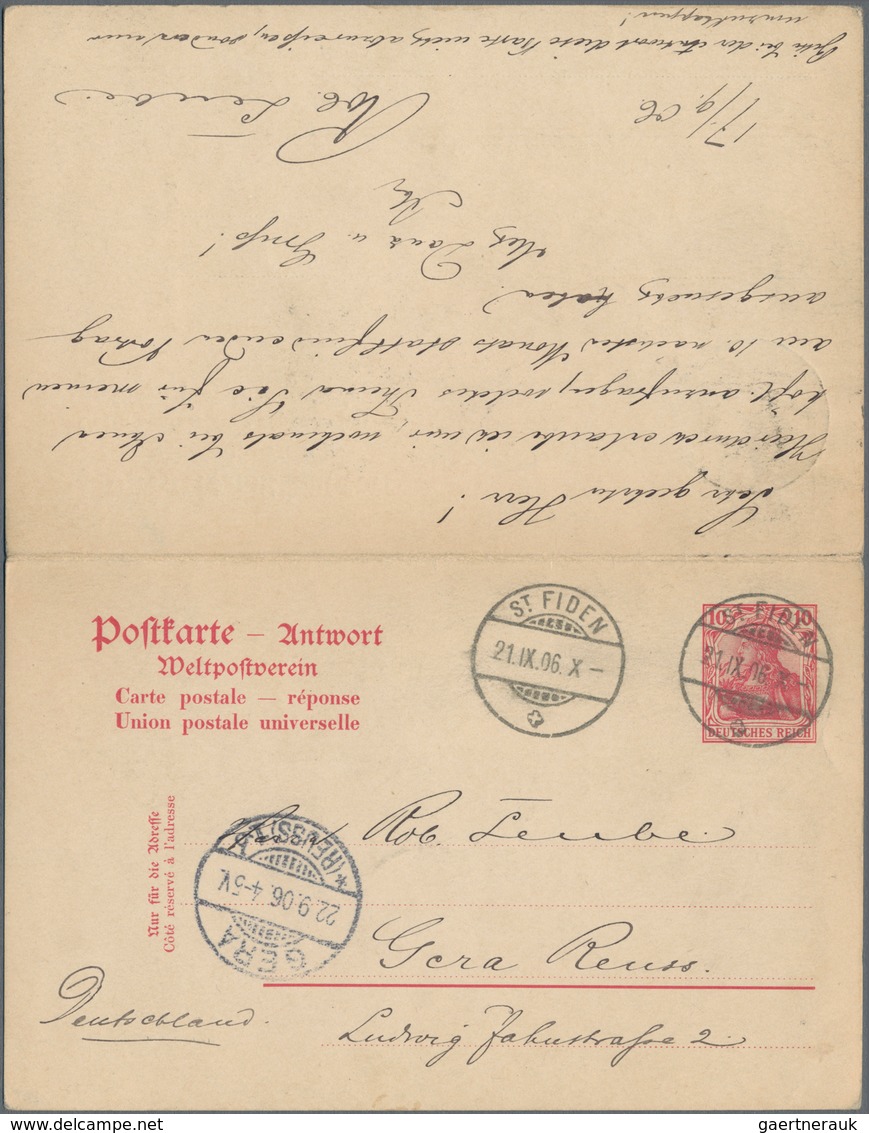 Sehr geehrter Herr!
Hierdurch erlaube ich mir, nochmals bei Ihnen
höfl. anzufragen, welches Thema Sie für meinen
am 10. nächsten Monats stattfindenden Vortrag
ausgesucht haben
Mit Dank u. Gruß!
Rob. Leube.
17/9.06
Bitte bei der Antwort diese Karte nicht abzureißen, sondern nur
umzuklappen!
Postkarte – Antwort
Weltpostverein
Carte postale — réponse
Union postale universelle
ST. FIDEN
21.IX.06. X –
ST. FIDEN
21.IX.06. X –
10 10
DEUTSCHES REICH
Nur für die Adresse
Côté réservé à l'adresse
GERA
22.9.06. 4-5 V.
*(REUSS)
Rob. Leube
Gera Reuss.
Deutschland.
Ludwig Jahnstraße 2
gaertnerauk @ delcampe.com